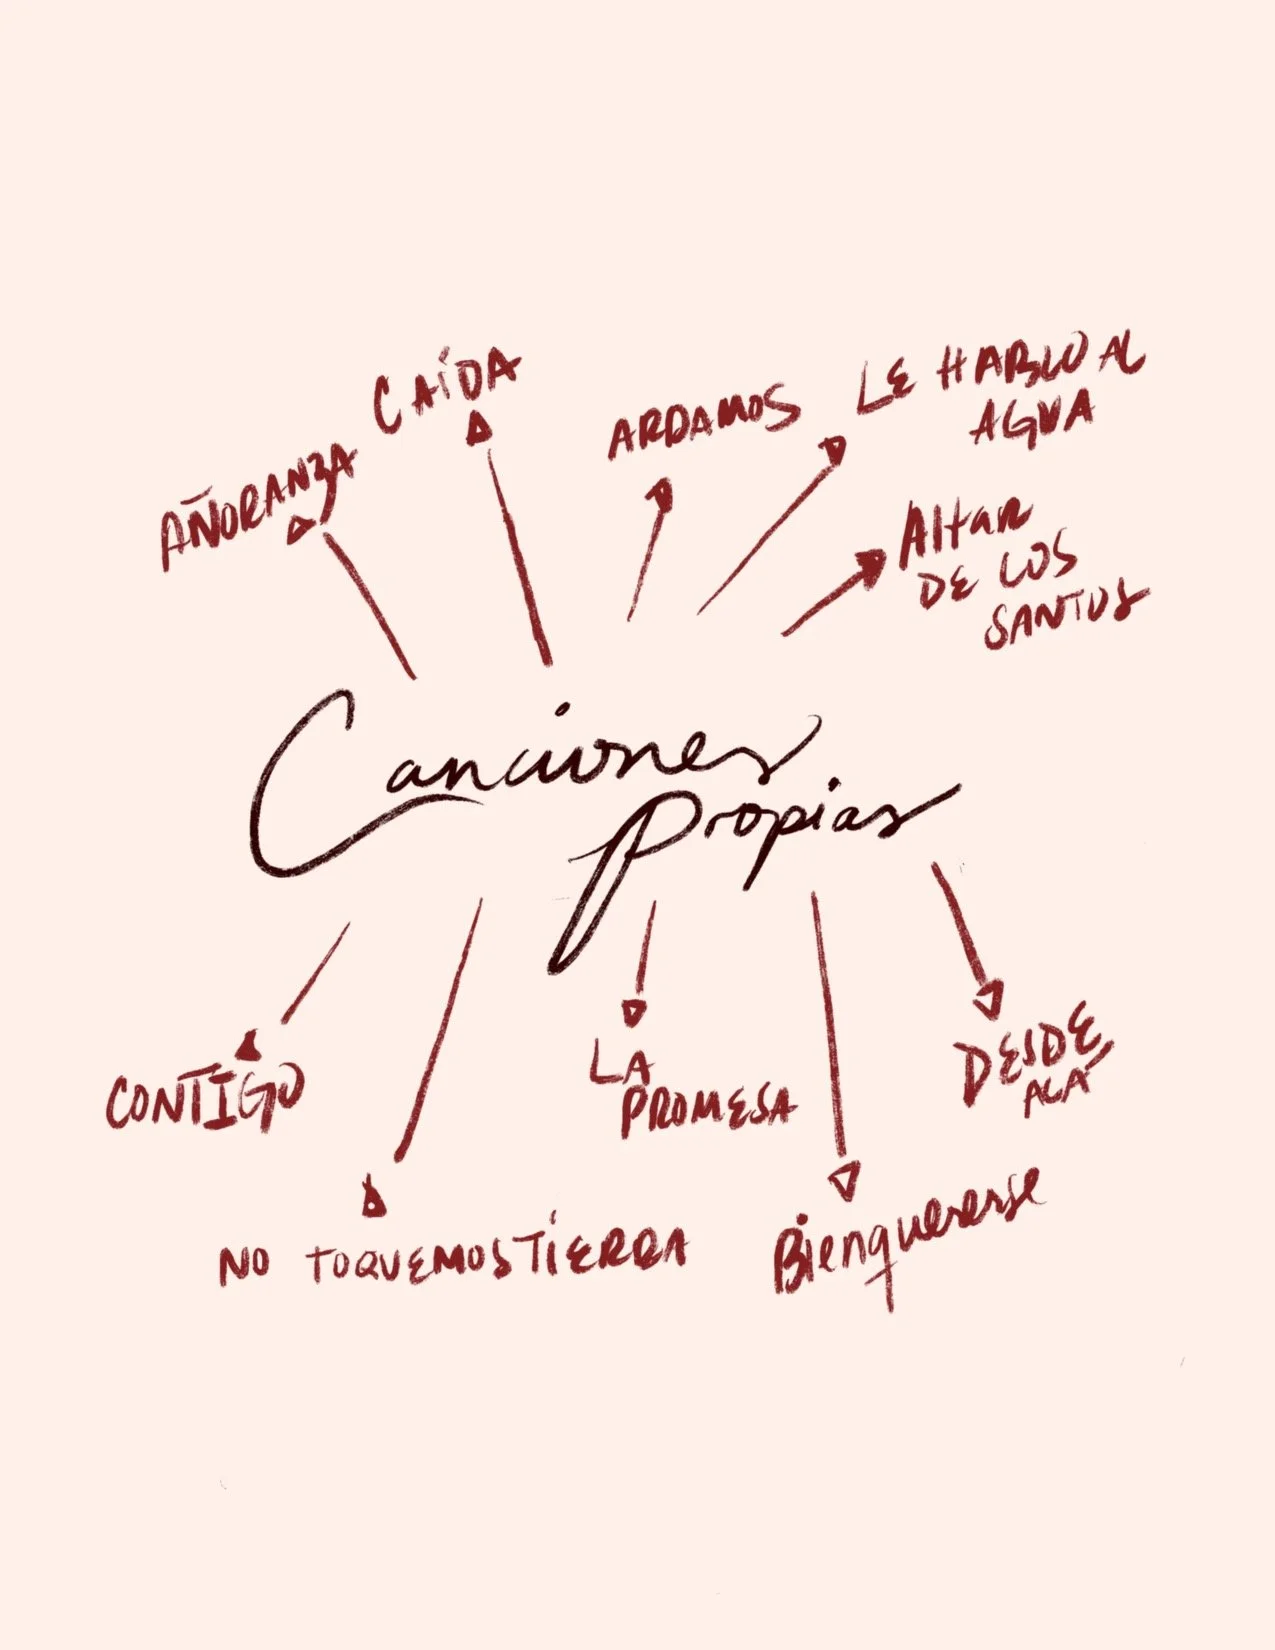 CAÍDA
AÑORANZA
ARDAMOS
LE HABLO AL
AGUA
Altar
DE LOS
SANTOS
Canciones
Propias
CONTIGO
LA
PROMESA
DESDE
ACÁ
NO TOQUEMOS TIERRA
Bienquererse